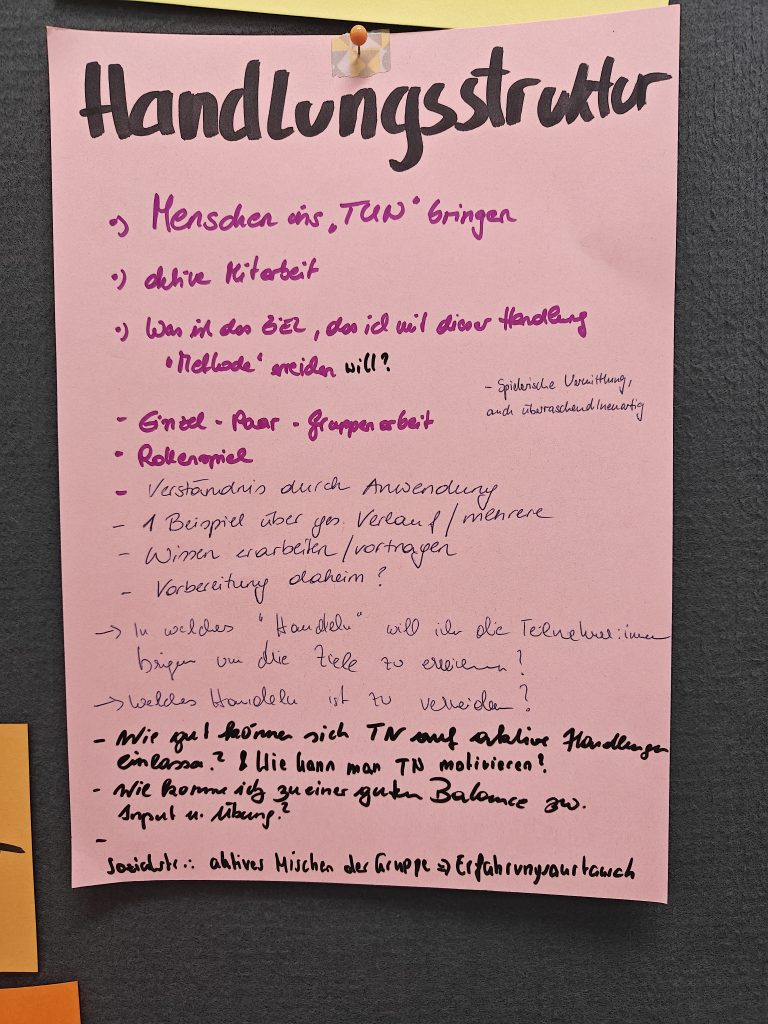 Handlungsstruktur
•) Menschen ins „TUN" bringen
•) aktive Mitarbeit
•) Was ist das ZIEL, das ich mit dieser Handlung
"Methode" erreichen will?
- Spielerische Vermittlung,
auch überraschend/neuartig
- Einzel - Paar - Gruppenarbeit
- Rollenspiel
- Verständnis durch Anwendung
- 1 Beispiel über ges. Verlauf/mehrere
- Wissen erarbeiten/vortragen
- Vorbereitung daheim?
→ In welches "Handeln" will ich die Teilnehmer:innen
bringen um die Ziele zu erreichen?
→ welches Handeln ist zu vermeiden?
- Wie gut können sich TN auf aktive Handlungen
einlassen? & Wie kann man TN motivieren?
- Wie komme ich zu einer guten Balance zw.
Input u. Übung?
-
Sozialstr.: aktives Mischen der Gruppe => Erfahrungsaustausch